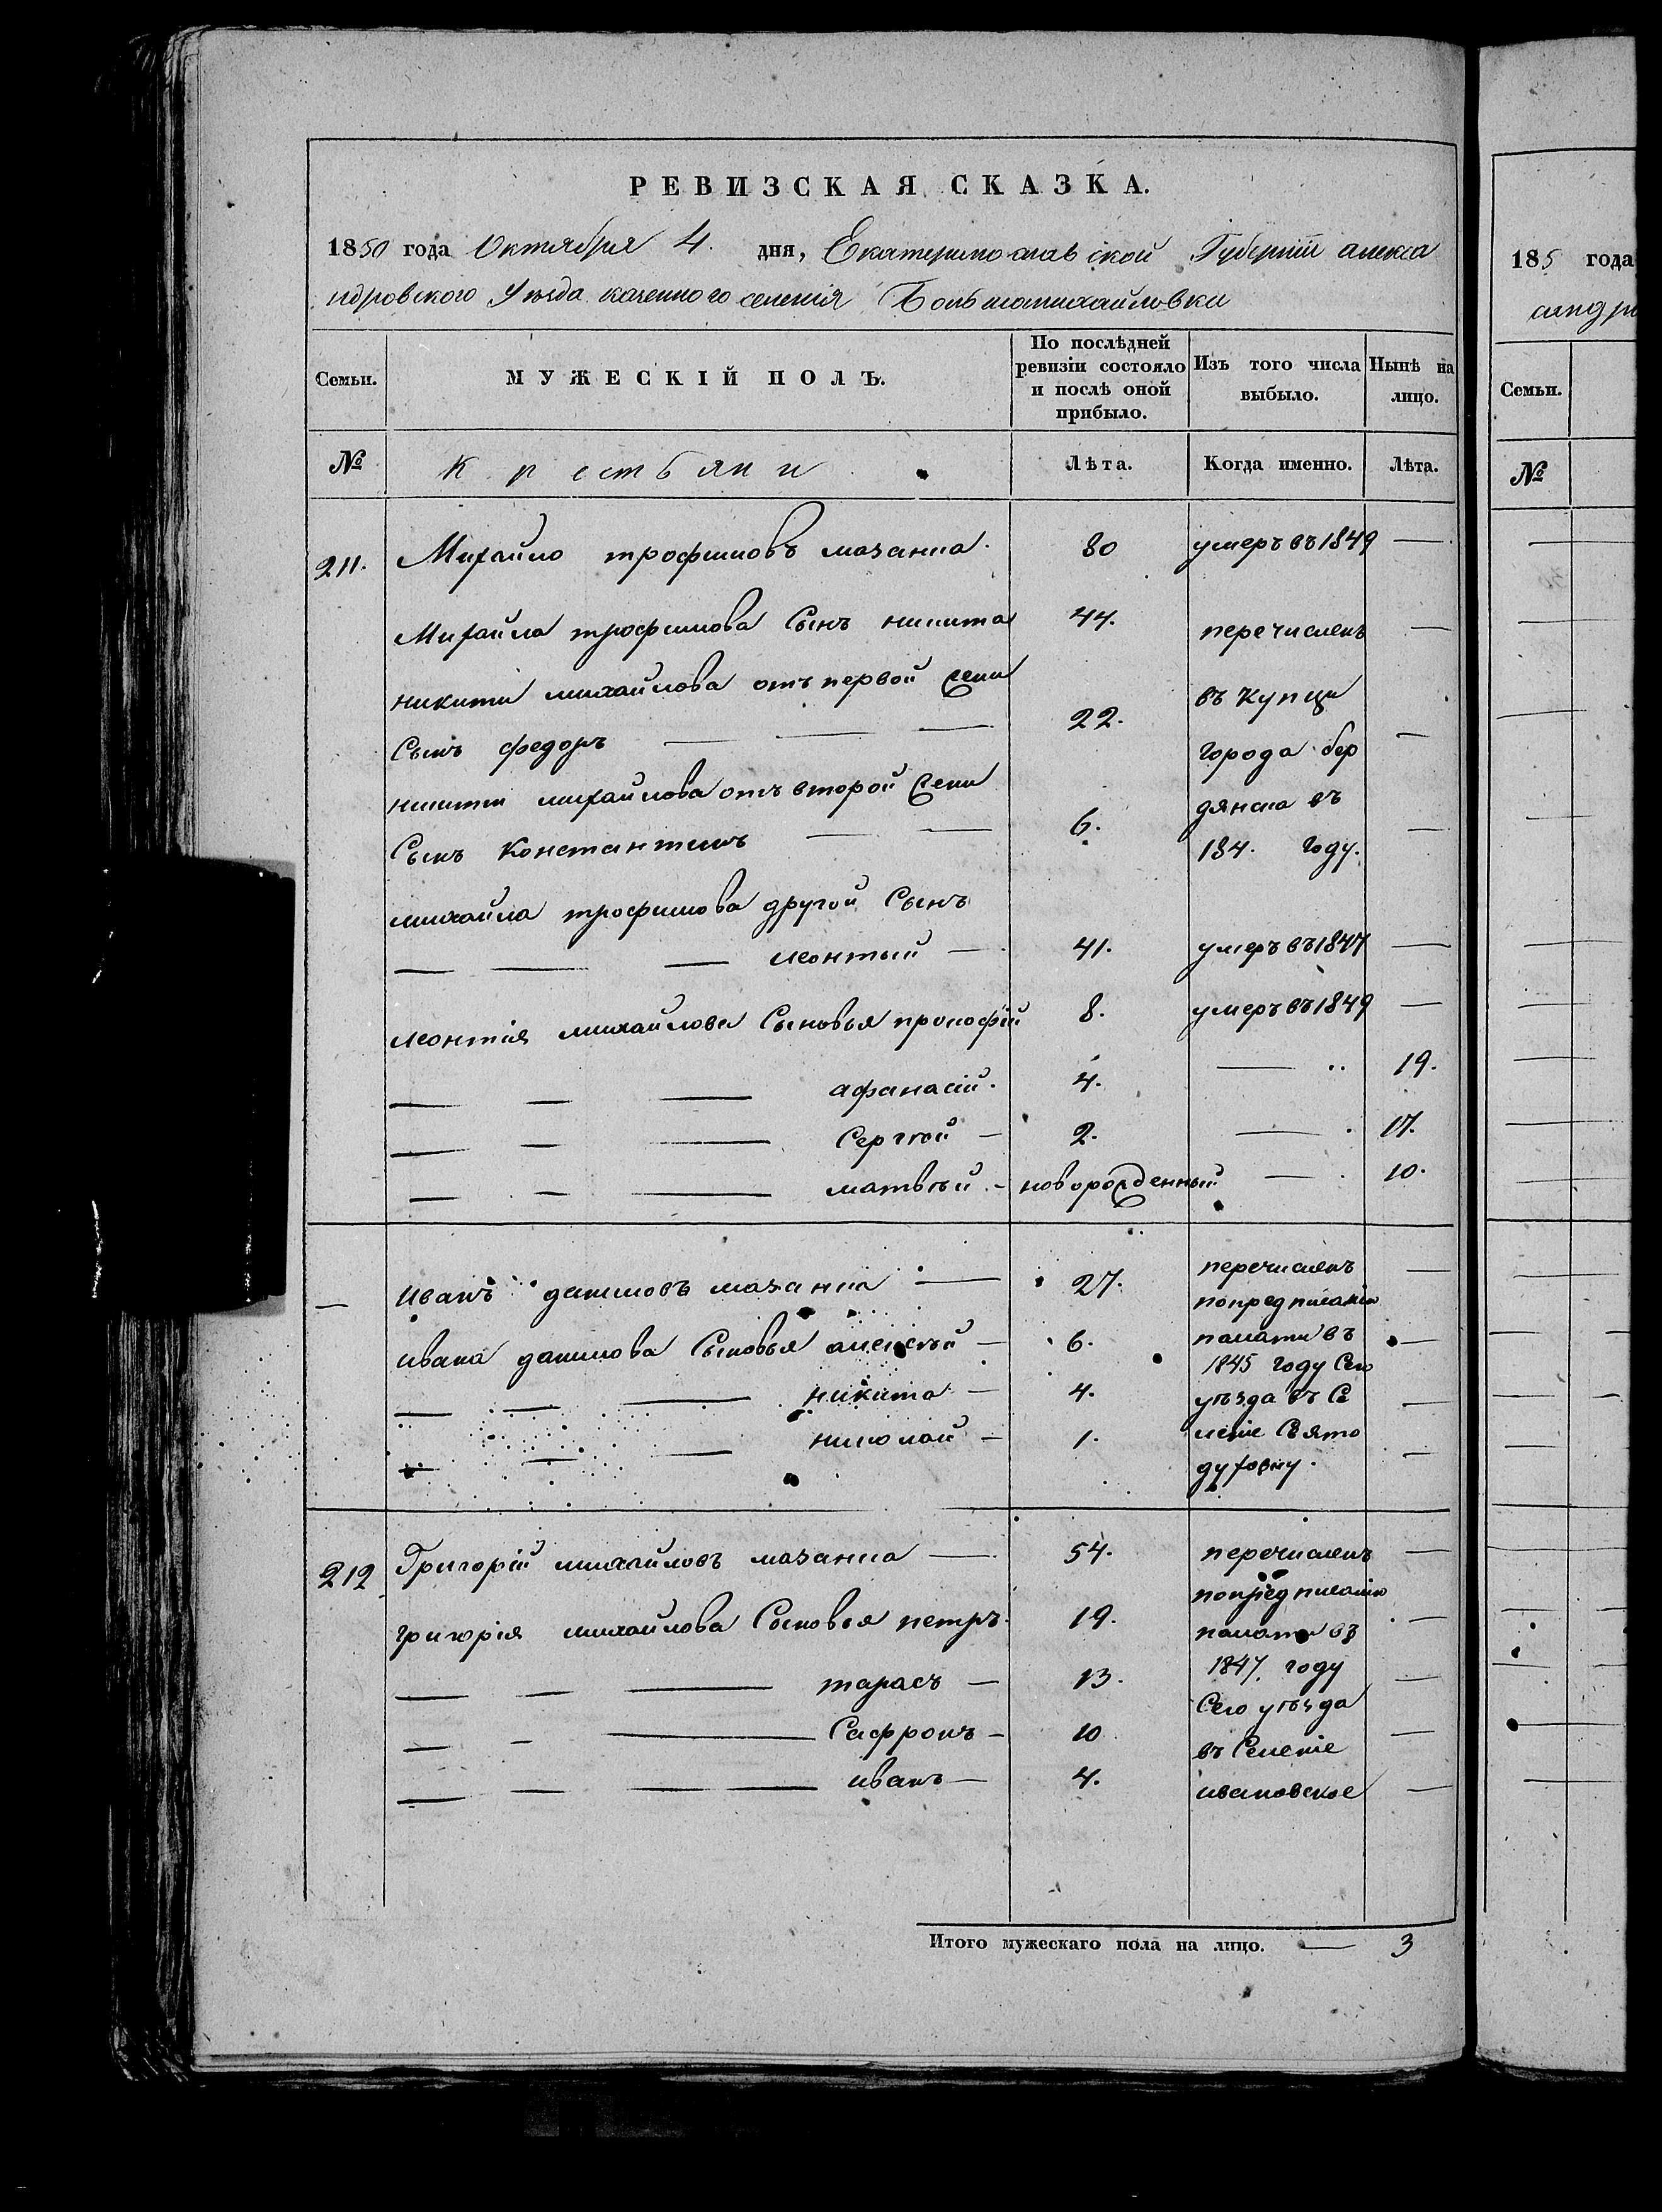 РЕВИЗСКАЯ СКАЗКА.
1850 года Октября 4. дня, Екатеринославской Губерніи алекса
ндровского Уезда казенного селенія Больмихайловки
Семьи. МУЖЕСКІЙ ПОЛЪ. По послѣдней ревизіи состояло и послѣ оной прибыло. Изъ того числа выбыло. Нынѣ на лицо.
№ Крестьяни Лѣта. Когда именно. Лѣта.
211. Михайло трофимовъ мазанка. 80 умеръ въ 1849 —
Михайла трофимова Сынъ никита 44. перечисленъ —
никити михайлова отъ первой жени въ купци
Сынъ федоръ — — — 22. города бер —
никити михайлова отъ второй жени дянска въ
Сынъ Константинъ — — 6. 184. году. —
михайла трофимова другой Сынъ
— — — леонтий — 41. умеръ въ 1847 —
леонтія михайлова Сыновья прокофій 8. умеръ въ 1849 —
— — — афанасій. 4. — 19.
— — — Сергѣй — 2. — 17.
— — — матвѣй. — новорожденный — 10.
— иванъ даниловъ мазанка — 27. перечисленъ —
попредписанію
ивана данилова Сыновья алексѣй — 6. палати въ —
1845 году Сего
— — — никита — 4. уѣзда въ Се —
— — — николай — 1. леніе Свято —
духовку.
212 Григорій михайловъ мазанка — 54. перечисленъ —
попредписанію
григорія михайлова Сыновья петръ. 19. палати въ —
— — — тарасъ — 13. 1847. году —
Сего уѣзда
— — — Сафронъ — 10 въ Селеніе —
— — — иванъ — 4. ивановское —
Итого мужескаго пола на лицо. — 3
185 года
Семьи.
№